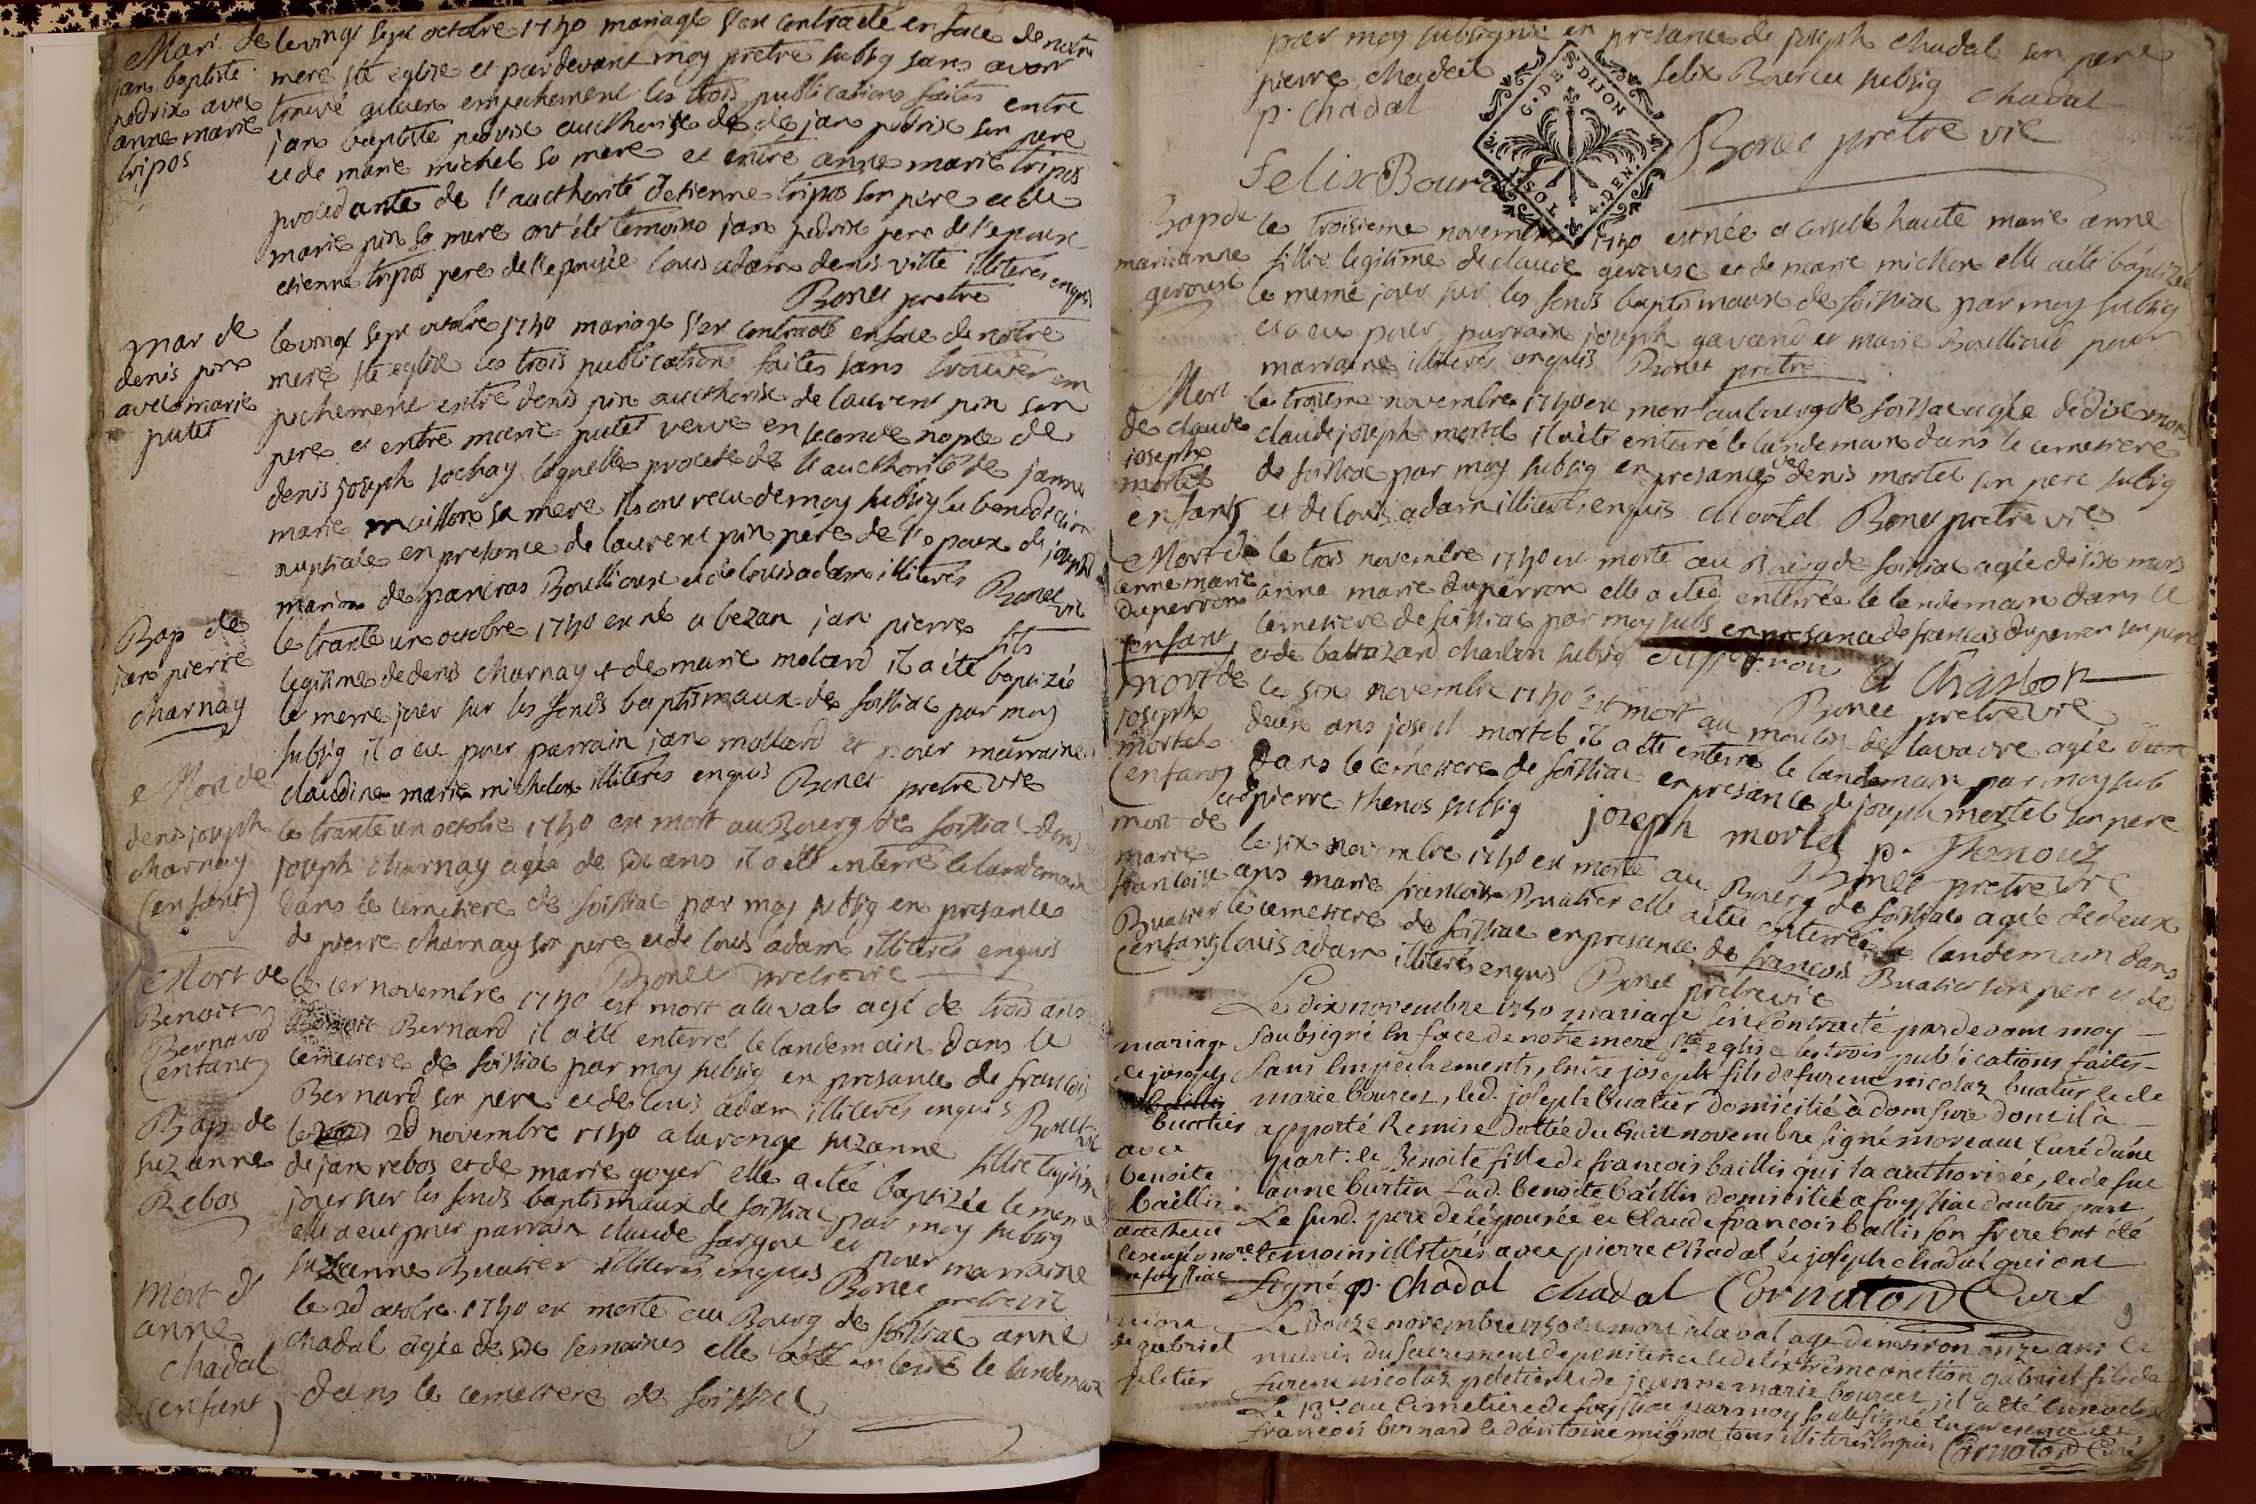 Mar. de
jan baptiste
pedrix avec
anne marie
tripos
le vingt sept octobre 1740 mariage s'est contracté en face de notre
mere ste eglise et pardevant moy pretre subsig sans avoir
trouvé aucun empechement les trois publications faites entre
jan baptiste pedrix aucthorisé de de jan pedrix son pere
et de marie michel sa mere et entre anne marie tripos
procedante de l'aucthorité d'etienne tripos son pere et de
marie pin sa mere ont été temoins jan pedrix pere de l'epoux
etienne tripos pere de l'epousée louis adam denis vitte illiterés enquis
Bonet pretre
mar de
denis pin
avec marie
putet
le vingt sept octobre 1740 mariage s'est contracté en face de nostre
mere ste eglise les trois publications faites sans trouver em
pechement entre denis pin aucthorisé de laurent pin son
pere et entre marie putet veuve en seconde nopce de
denis joseph jochay laquelle procede de l'aucthorité de janne
marie muillon sa mere ils ont recu de moy subsig la benediction
nuptiale en presance de laurent pin pere de l'epoux de joseph
marion de pancras Boullioux et de louis adam illiterés Bonet
vic
Bap de
jan pierre
charnay
le trante un octobre 1740 est né a bezan jan pierre fils
legitime de denis charnay et de marie molard il a été baptizé
le meme jour sur les fonds baptismaux de foissiac par moy
subsig il a eu pour parrain jan mollard et pour marraine
claudine marie michelon illiterés enquis Bonet pretre vic
Mort de
denis joseph
charnay
(enfant)
le trante un octobre 1740 est mort au Bourg de foissiac denis
joseph charnay agée de six ans il a été enterré le landemain
dans le cemetiere de foissiac par moy subsig en presance
de pierre charnay son pere et de louis adam illiterés enquis
Bonet pretre vic
Mort de
Benoit
Bernard
(enfant)
le 1er novembre 1740 est mort a laval agé de trois ans
Benoit Bernard il a été enterré le landemain dans le
cemetiere de foissiac par moy subsig en presance de francois
Bernard son pere et de louis adam illiterés enquis Bonet
vic
Bap de
suzanne
Rebos
le 2d novembre 1740 a la ronge suzanne fillie legitime
de jan rebos et de marie goyer elle a étée baptizée le meme
jour sur les fonds baptismaux de foissiac par moy subsig
elle a eut pour parrain claude fargon et pour marraine
suzanne Buatier illiterés enquis Bonet pretre vic
Mort d'
anne
chadal
(enfant)
le 2d octobre 1740 est morte au Bourg de foissiac anne
chadal agée de six semaines elle a été enterré le landemain
dans le cemetiere de foissiac
par moy subsigné en presance de joseph chadal son pere
pierre chadal felix Bourcet subsig chadal
p. chadal
Felix Bourcet Bonet pretre vic
G. DE DIJON
4. DEN.
Bap de
marianne
geroux
le troisieme novembre 1740 est née a cerselle haute marie anne
fillie legitime de claude geroux et de marie michon elle a été baptizée
le meme jour sur les fonds baptismaux de foissiac par moy subsig
et a eu pour parrain joseph gavand et marie Boulliord pour
marraine illiterés enquis Bonet pretre
Mort
de claude
joseph
mortel
enfant
le troisieme novembre 1740 est mort au bourg de foissiac agée de dix mois
claude joseph mortel il a été enterré le landemain dans le cemetiere
de foissiac par moy subsig en presance de denis mortel son pere subsig
et de louis adam illiterés enquis d mortel Bonet pretre vic
Mort de
anne marie
duperron
enfant
le trois novembre 1740 est morte au Bourg de foissiac agée de six mois
anne marie duperron elle a étée enterrée le landemain dans le
cemetiere de foissiac par moy subs en presance de francois duperron son pere
et de baltazard charlon subsig dupperon
B Charlon
Bonet pretre vic
Mort de
joseph
mortel
(enfant)
le six novembre 1740 est mort au moulin de lavavre agée d'un
deux ans joseph mortel il a été enterré le landemain par moy sub
dans le cemetiere de foissiac en presance de joseph mortel son pere
et de pierre thenos subsig joseph mortel p. Thenouz
Bonet pretre vic
mort de
marie
francoise
Buatier
(enfant)
le six novembre 1740 est morte au Bourg de foissiac agée de deux
ans marie francoise Buatier elle a étée enterrée le landemain dans
le cemetiere de foissiac en presance de francois Buatier son pere et de
louis adam illiterés enquis Bonet pretre vic
mariage
de joseph
buatier
avec
benoite
baillis
Le dix novembre 1740 mariage s'est contracté pardevant moy
soubsigné en face de notre mere ste eglise les trois publications faites
sans empechements, entre joseph fils de furent nicolaz buatier et de
marie bourcet, led. joseph buatier domicilié à domsure dont il à
apporté Remise dattée du huit novembre signé moreaux Curé d'une
part. et Benoite fille de francois baillis qui la authorisée, et de fue
anne burtin lad. benoite baillis domiciliée a foyssiac d'autre part.
Le susd. pere de l'épousée et Claude francois ballis son frere ont été
temoins illiterés avec pierre Chadal et joseph chadal qui ont
signé p. chadal chadal Cornaton Curé
9
mort
de gabriel
peletier
Le douze novembre 1740 est mort a laval age d'environ onze ans et
munis du sacrement de penitence et de l'extreme onction gabriel fils de
furent nicolaz peletier et de jeanne marie bourcet, il a été inhumé
Le 13e au Cimetiere de foyssiac par moy soubsigné en presence de
francois bernard et d'antoine mignot tous illiterés enquis Cornaton Curé